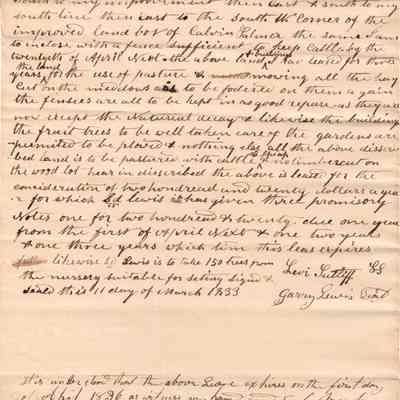 south line then east to the south corner of the
improved land bot of Calvin Palmer the same I am
to inclose with a fence sufficient to keep Cattle by the
twentyeth of April Next the above land I have leased for three
years the land for the use of pasture & mowing all the hay
Cut on the medows is to be foddered on them a gain
the fences are all to be kept in as good repare as they are
now except the Natural decay & likewise the building
the fruit trees to be well taken care of the gardens are
permited to be plowed & nothing else all the above discre
bed land is to be pastured with cattle & no timber cut on
the wood lot hear in discribed the above is leased for the
consideration of two hundread and twenty dollars a yea
r for which Sd Lewis has given three promisory
Notes one for two hundread & twenty due one year
from the first of April Next & one two years
& one three years which time this leas expires
likewise Sd Lewis is to take 150 trees from
the nursery suitable for seting signd &
seald this 11 day of March 1833
Levi Sutliff
Garry Lewis
It is understood that the above Lease expires on the first day
of April 1836 as witness my hand